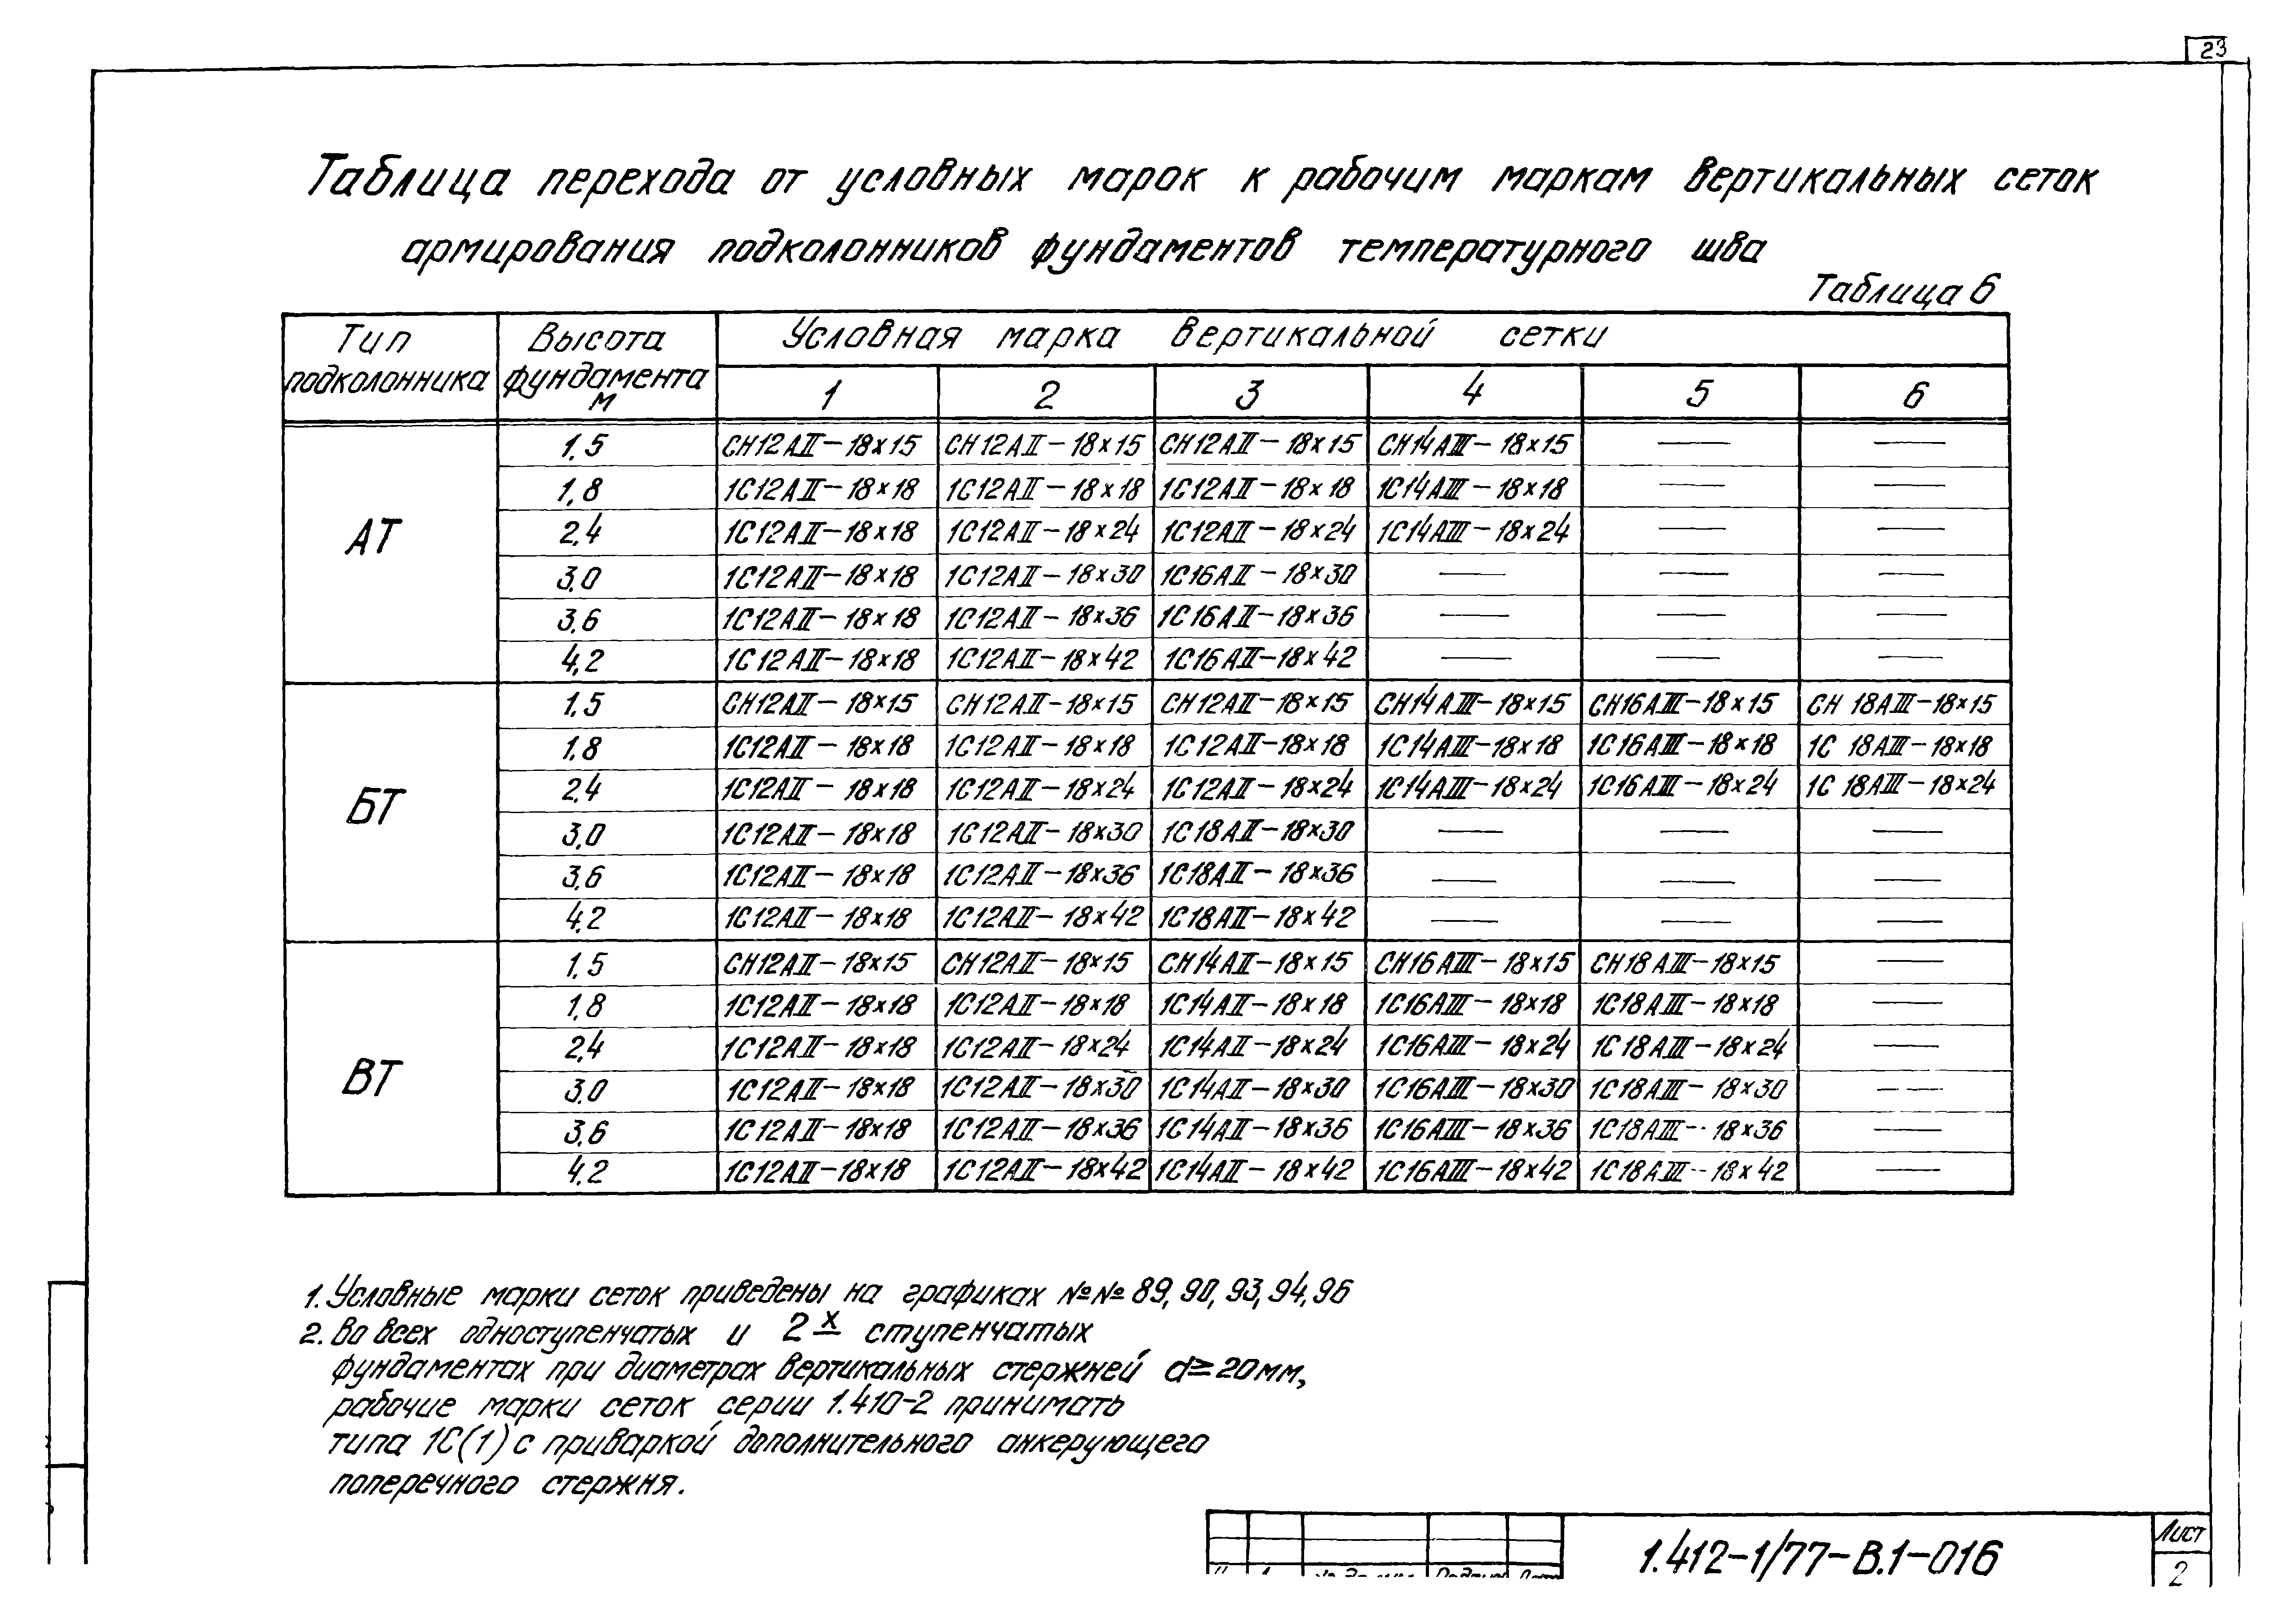 23
Таблица перехода от условных марок к рабочим маркам вертикальных сеток
армирования подколонников фундаментов температурного шва
Таблица 6
Тип подколонника Высота фундамента м Условная марка вертикальной сетки
1 2 3 4 5 6
АТ
1,5 СН12АII–18×15 СН12АII–18×15 СН12АII–18×15 СН14АIII–18×15 — —
1,8 1С12АII–18×18 1С12АII–18×18 1С12АII–18×18 1С14АIII–18×18 — —
2,4 1С12АII–18×18 1С12АII–18×24 1С12АII–18×24 1С14АIII–18×24 — —
3,0 1С12АII–18×18 1С12АII–18×30 1С16АII–18×30 — — —
3,6 1С12АII–18×18 1С12АII–18×36 1С16АII–18×36 — — —
4,2 1С12АII–18×18 1С12АII–18×42 1С16АII–18×42 — — —
БТ
1,5 СН12АII–18×15 СН12АII–18×15 СН12АII–18×15 СН14АIII–18×15 СН16АIII–18×15 СН 18АIII–18×15
1,8 1С12АII–18×18 1С12АII–18×18 1С12АII–18×18 1С14АIII–18×18 1С16АIII–18×18 1С 18АIII–18×18
2,4 1С12АII–18×18 1С12АII–18×24 1С12АII–18×24 1С14АIII–18×24 1С16АIII–18×24 1С 18АIII–18×24
3,0 1С12АII–18×18 1С12АII–18×30 1С18АII–18×30 — — —
3,6 1С12АII–18×18 1С12АII–18×36 1С18АII–18×36 — — —
4,2 1С12АII–18×18 1С12АII–18×42 1С18АII–18×42 — — —
ВТ
1,5 СН12АII–18×15 СН12АII–18×15 СН14АII–18×15 СН16АIII–18×15 СН18АIII–18×15 —
1,8 1С12АII–18×18 1С12АII–18×18 1С14АII–18×18 1С16АIII–18×18 1С18АIII–18×18 —
2,4 1С12АII–18×18 1С12АII–18×24 1С14АII–18×24 1С16АIII–18×24 1С18АIII–18×24 —
3,0 1С12АII–18×18 1С12АII–18×30 1С14АII–18×30 1С16АIII–18×30 1С18АIII–18×30 —
3,6 1С12АII–18×18 1С12АII–18×36 1С14АII–18×36 1С16АIII–18×36 1С18АIII–18×36 —
4,2 1С12АII–18×18 1С12АII–18×42 1С14АII–18×42 1С16АIII–18×42 1С18АIII–18×42 —
1. Условные марки сеток приведены на графиках №№ 89, 90, 93, 94, 96
2. Во всех одноступенчатых и 2х ступенчатых
фундаментах при диаметрах вертикальных стержней d≥20мм,
рабочие марки сеток серии 1.410-2 принимать
типа 1С(1) с приваркой дополнительного анкерующего
поперечного стержня.
1.412-1/77-В.1-016
Лист
2